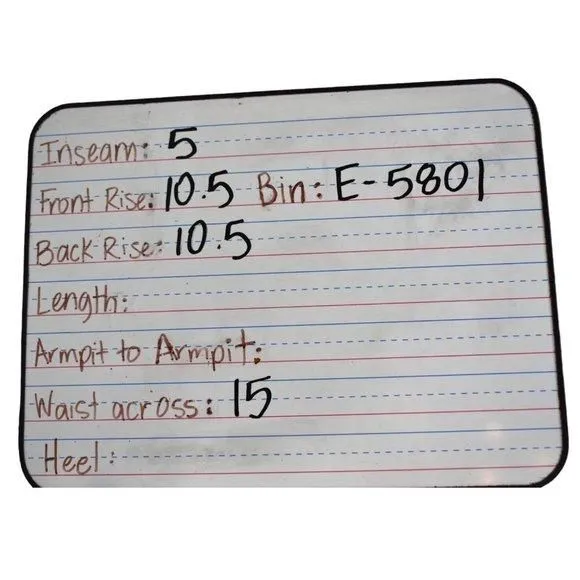 Inseam: 5
Front Rise: 10.5 Bin: E-5801
Back Rise: 10.5
Length:
Armpit to Armpit:
Waist across: 15
Heel: